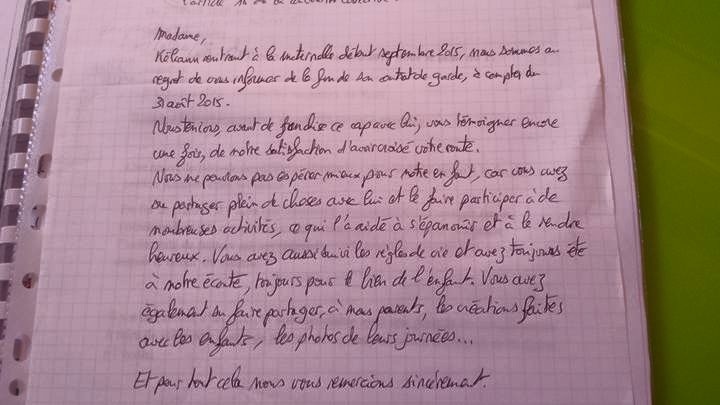 l'article 18 de la convention collective
Madame,
Kélyann rentrant à la maternelle début septembre 2015, nous sommes au
regret de vous informer de la fin de son contrat de garde, à compter du
31 août 2015.
Nous tenions, avant de franchir ce cap avec lui, vous témoigner encore
une fois, de notre satisfaction d'avoir croisé votre route.
Nous ne pouvions pas espérer mieux pour notre enfant, car vous avez
su partager plein de choses avec lui et le faire participer à de
nombreuses activités, ce qui l'a aidé à s'épanouir et à le rendre
heureux. Vous avez aussi suivi les règles de vie et avez toujours été
à notre écoute, toujours pour le bien de l'enfant. Vous avez
également su faire partager, à nous parents, les créations faites
avec les enfants, les photos de leurs journées...
Et pour tout cela nous vous remercions sincèrement.